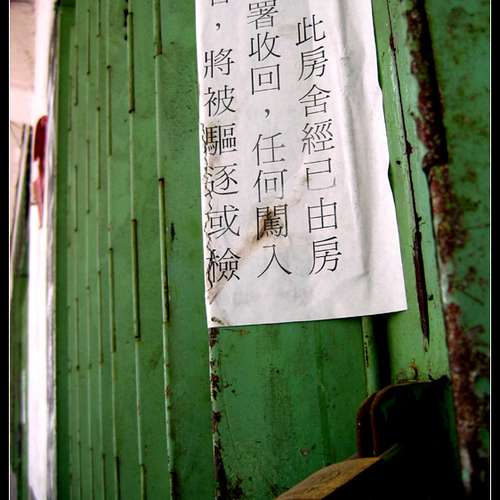 此房舍經已由房
署收回，任何闖入
，將被驅逐或檢